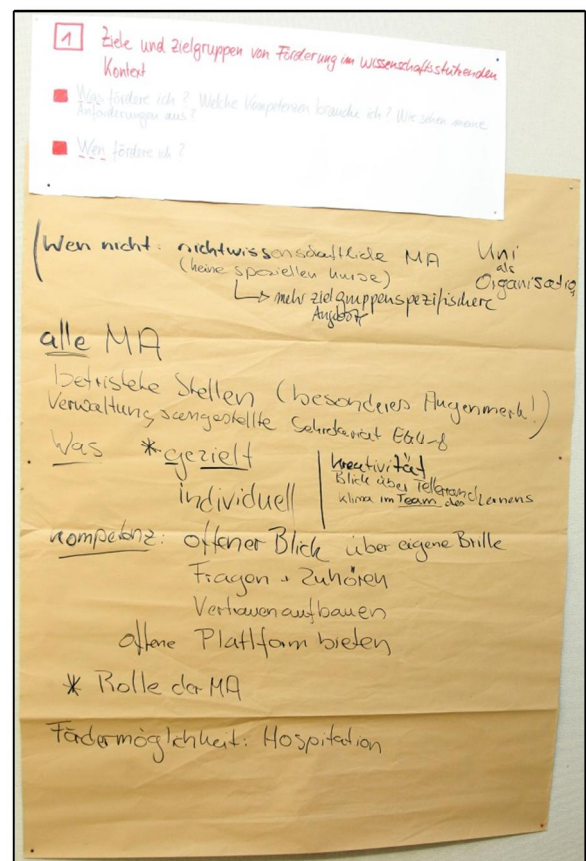 1 Ziele und Zielgruppen von Förderung im wissenschaftsstützenden
Kontext
Was fördere ich? Welche Kompetenzen brauche ich? Wie sehen meine
Anforderungen aus?
Wen fördere ich?
Wen nicht: nichtwissenschaftliche MA
(keine speziellen Kurse)
mehr zielgruppenspezifischere
Angebote
Uni
als
Organisation
alle MA
befristete Stellen (besonderes Augenmerk!)
Verwaltungsangestellte Sekretariat EG4-8
Was * gezielt
individuell
Kreativität
Blick über Tellerrand
Klima im Team des Lernens
Kompetenz: offener Blick über eigene Brille
Fragen + Zuhören
Vertrauen aufbauen
offene Plattform bieten
* Rolle der MA
Fördermöglichkeit: Hospitation